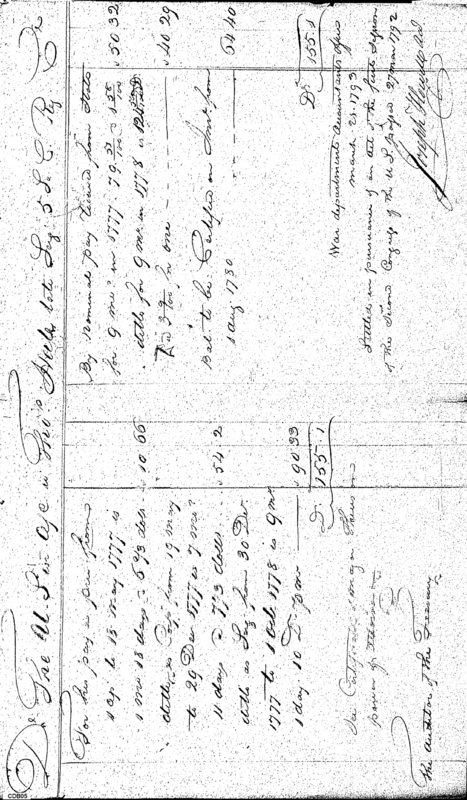 Dr The U.S. in a/c w Thos Hicks late Serj 5 S.C. Reg Cr
For his pay as priv from
1 Ap. to 18 May 1777 is
1 mo 18 days @ 6 2/3 dols . 10 66
ditto, as Corpl from 19 May
to 29 Dec. 1777 is 7 mos
11 days @ 7 1/3 dolls . 54 2
ditto as Serj from 30 Dec.
1777 to 1 Oct. 1778 is 9 mo
1 day 10 D. p mo 90 33
D. 155.1
See Certificate
The Auditor of the Treasury
By nominal pay received from State
for 9 mos in 1777
50 32
ditto for 9 mo. in 1778 is
40 29
Bal to be Certified on Int from
1 Aug. 1780
64 40
Ds 155.1
War department Accountants office
March 28. 1793
Settled in pursuance of an Act of the first Session
of the Second Congress of the U.S. passed 27 Mar 1792
Joseph Howell
CDB05